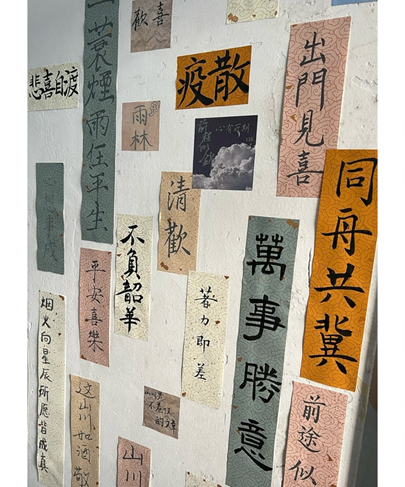 悲喜自渡
一蓑煙雨任平生
歡喜
疫散
出門見喜
雨林
心有可期
清歡
同舟共冀
不負韶華
萬事勝意
平安喜樂
着力即差
烟火向星辰所愿皆成真
这山川如酒敬
山川
前途似